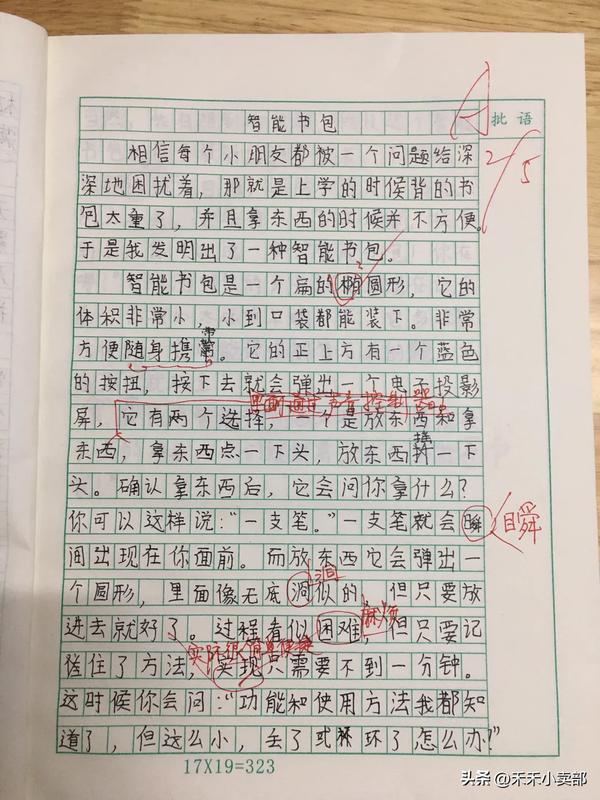 A
批语
2/5
智能书包
相信每个小朋友都被一个问题给深
深地困扰着，那就是上学的时候背的书
包太重了，并且拿东西的时候并不方便。
于是我发明出了一种智能书包。
智能书包是一个扁的椭圆形，它的
体积非常小，小到口袋都能装下。非常
方便随身携带。它的正上方有一个蓝色
的按扭，按下去就会弹出一个电子投影
里面通过声音控制
屏，它有两个选择，一个是放东西和拿
东西，拿东西点一下头，放东西摇一下
头。确认拿东西后，它会问你拿什么？
你可以这样说：“一支笔。”一支笔就会瞬
瞬
间出现在你面前。而放东西它会弹出一
洞
个圆形，里面像无底洞似的，但只要放
麻烦
进去就好了。过程看似困难，但只要记
实际很简单便捷
住了方法，实现只需要不到一分钟。
这时候你会问：“功能和使用方法我都知
道了，但这么小，丢了或坏了怎么办？”
17X19=323
头条 @禾禾小卖部